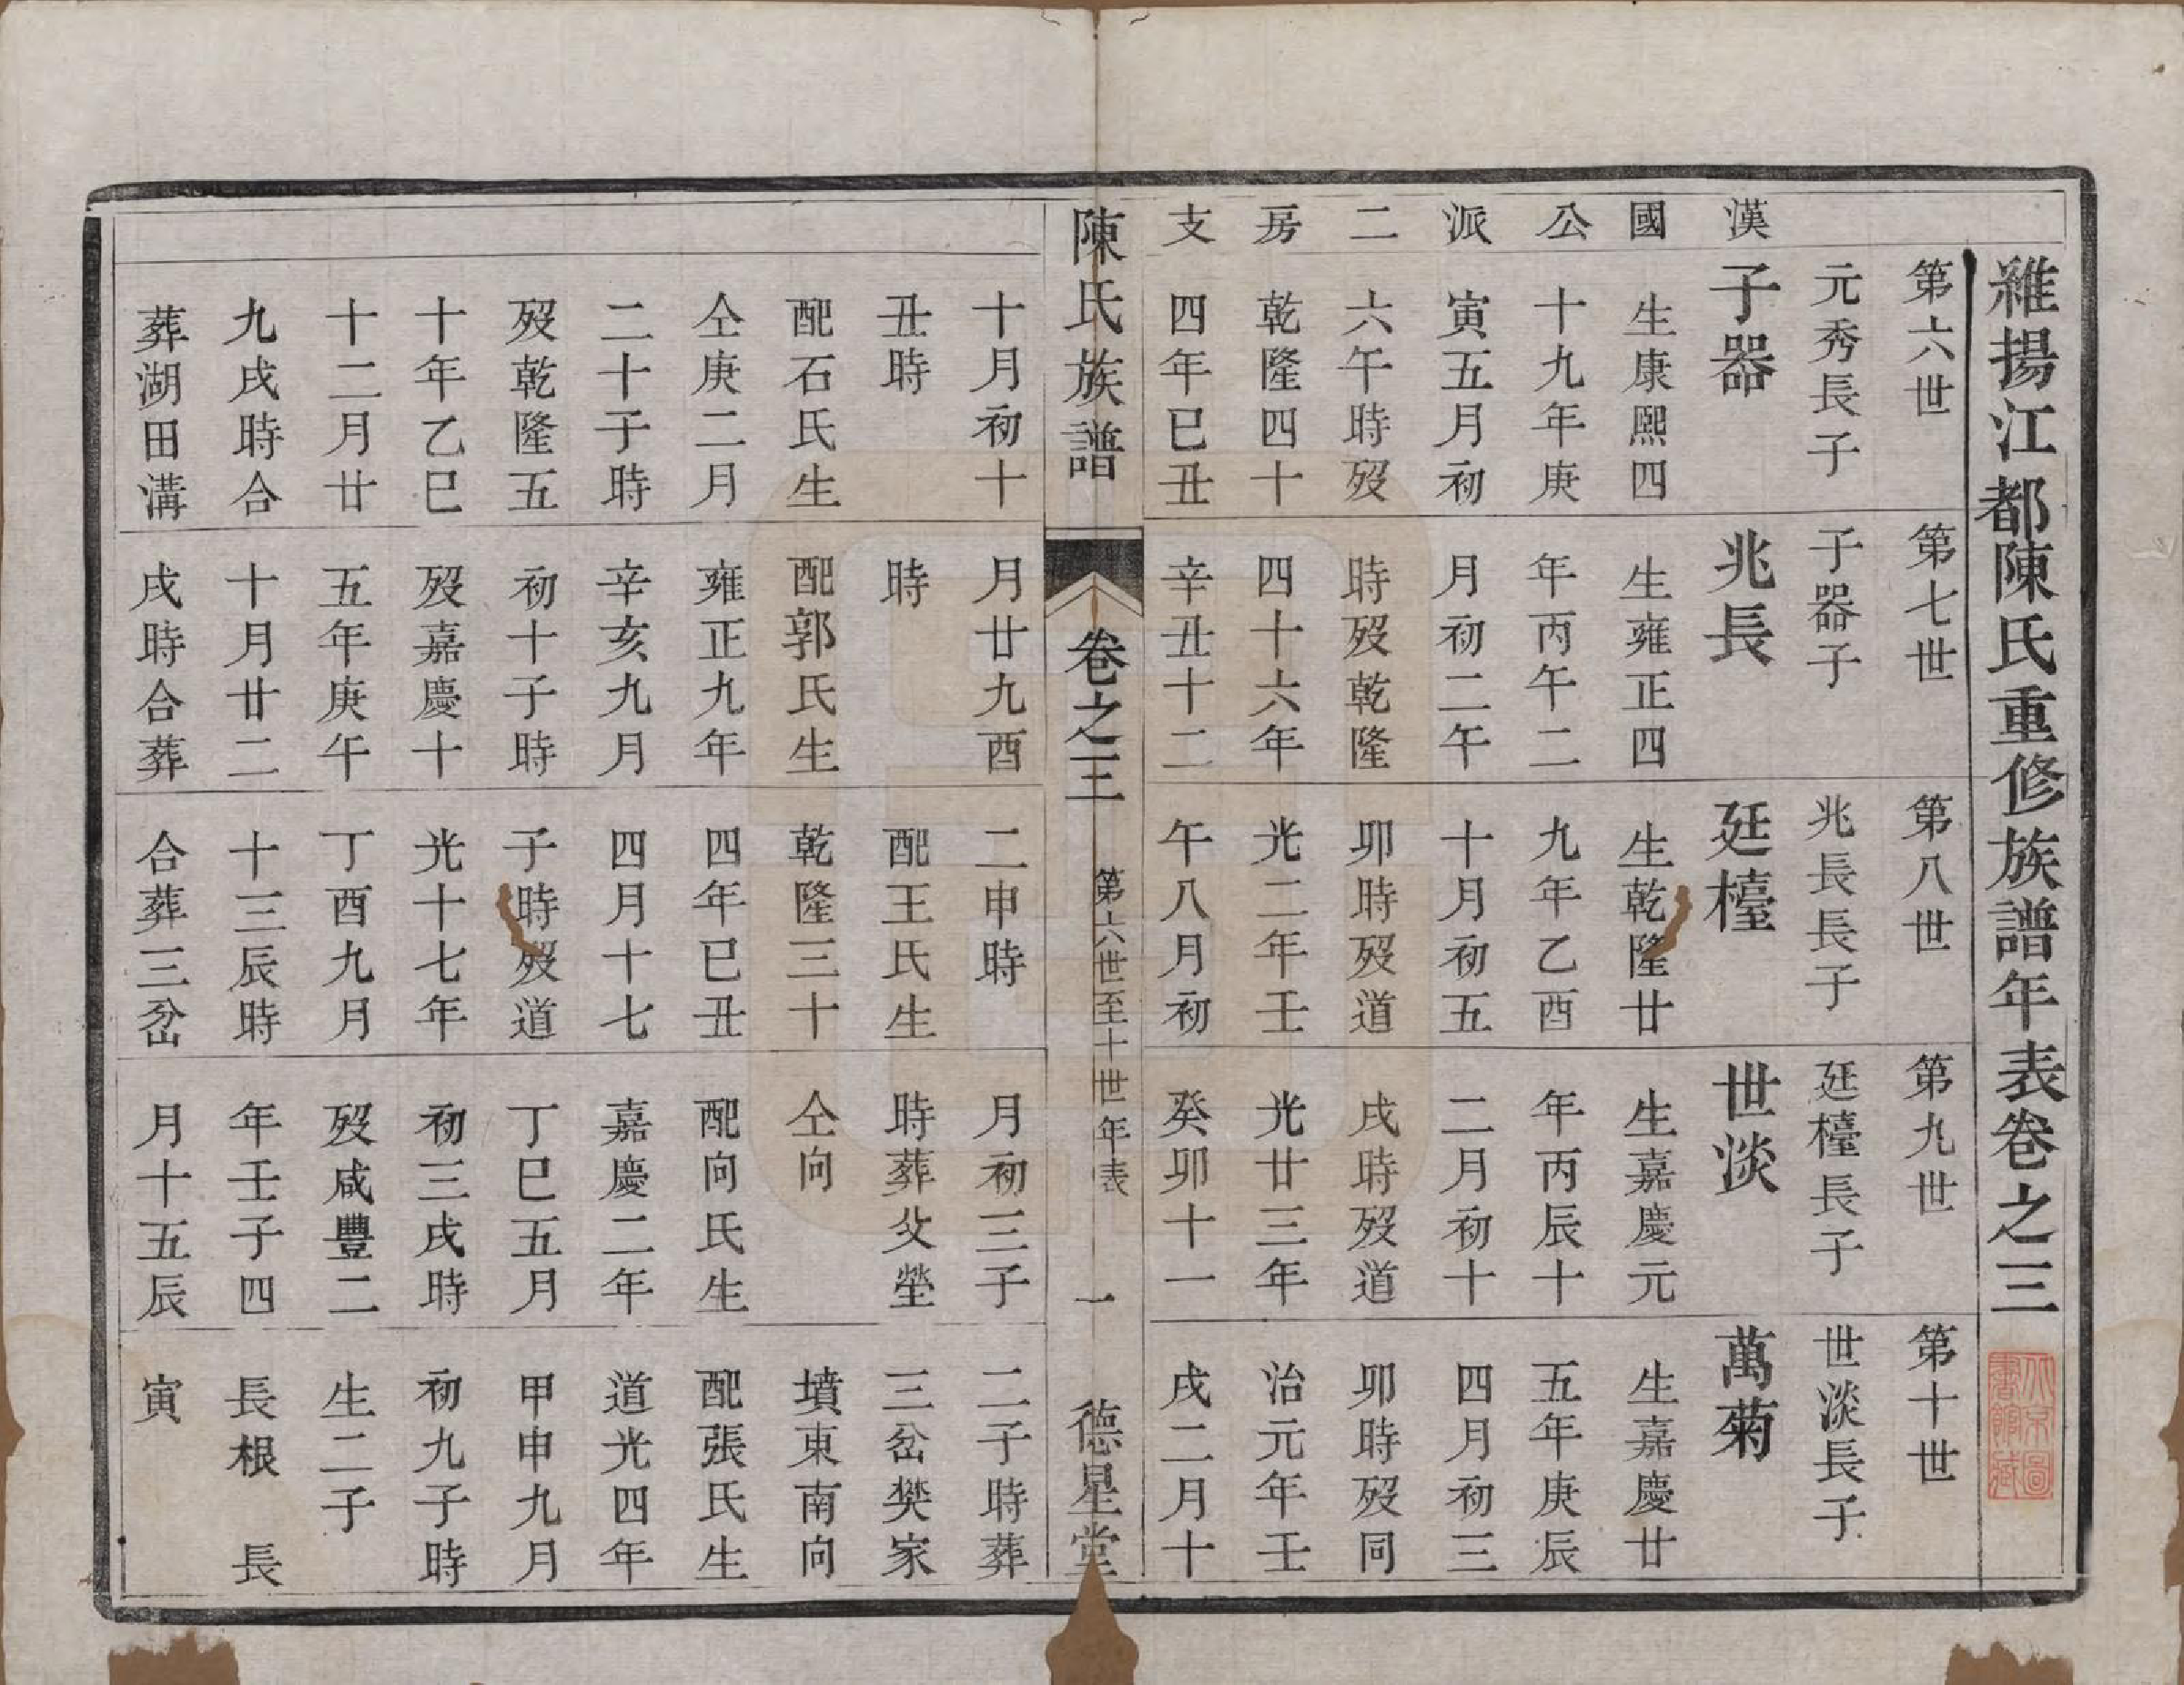 雒揚江都陳氏重修族譜年表卷之三
漢國公派二房支
第六世
元秀長子
子器
生康熙四
十九年庚
寅五月初
六午時歿
乾隆四十
四年巳丑
十月初十
丑時
配石氏生
仝庚二月
二十子時
歿乾隆五
十年乙巳
十二月廿
九戌時合
葬湖田溝
第七世
子器子
兆長
生雍正四
年丙午二
月初二午
時歿乾隆
四十六年
辛丑十二
月廿九酉
時
配郭氏生
雍正九年
辛亥九月
初十子時
歿嘉慶十
五年庚午
十月廿二
戌時合葬
第八世
兆長長子
廷檯
生乾隆廿
九年乙酉
十月初五
卯時歿道
光二年壬
午八月初
二申時
配王氏生
乾隆三十
四年巳丑
四月十七
子時歿道
光十七年
丁酉九月
十三辰時
合葬三岔
第九世
廷檯長子
世淡
生嘉慶元
年丙辰十
二月初十
戌時歿道
光廿三年
癸卯十一
月初三子
時葬父塋
仝向
配向氏生
嘉慶二年
丁巳五月
初三戌時
歿咸豐二
年壬子四
月十五辰
第十世
世淡長子
萬菊
生嘉慶廿
五年庚辰
四月初三
卯時歿同
治元年壬
戌二月十
二子時葬
三岔樊家
墳東南向
配張氏生
道光四年
甲申九月
初九子時
生二子
長根 長
寅
陳氏族譜 卷之三 第六世至十世年表 一 德星堂